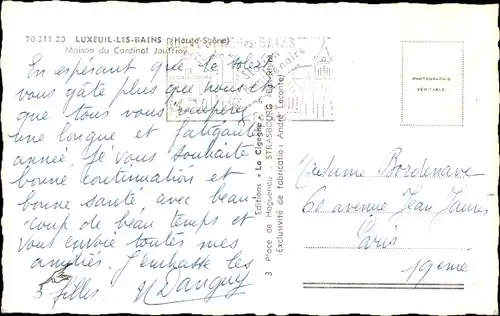 70.211.20 LUXEUIL-LES-BAINS (Haute-Saône)
Maison du Cardinal Jouffroy
En espérant que le soleil
vous gâte plus que nous et
que tous vous
une longue et fatigante
année. Je vous souhaite
bonne continuation et
bonne santé avec beau-
coup de beau temps et
vous envoie toutes mes
amitiés. J'embrasse les
3 filles.
3 Place de Haguenau . STRASBOURG (Bas-Rhin)
Editions « La Cigogne »
Exclusivité de fabrication: André Leconte
PHOTOGRAPHIE
VÉRITABLE
Madame Bordenave
60 avenue Jean Jaurès
Paris
19ème